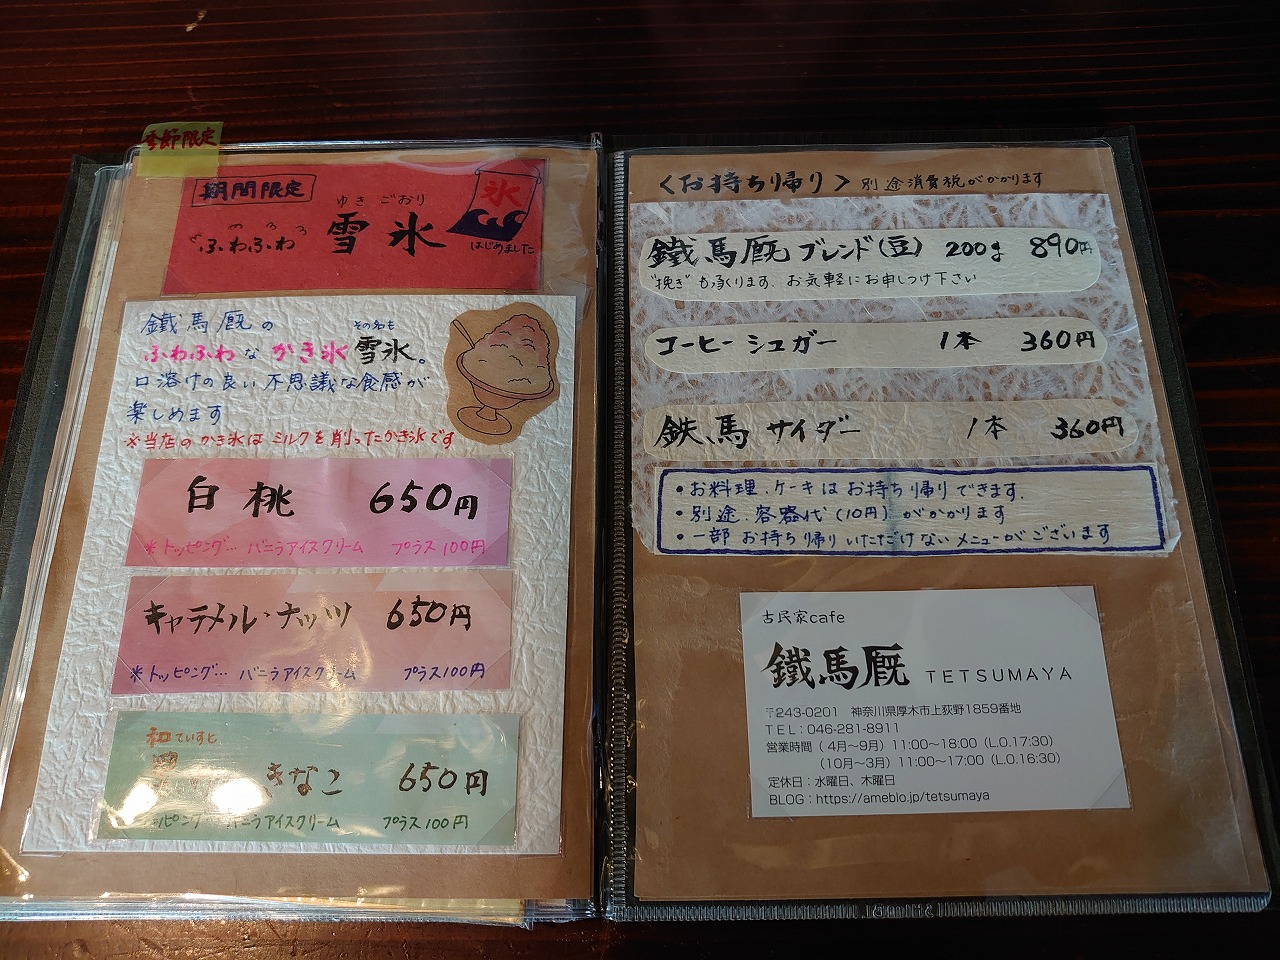 季節限定
期間限定
ゆき ごおり
ふわふわ 雪氷
氷
はじめました
鐵馬厩の その名も
ふわふわな かき氷 雪氷。
口溶けの良い 不思議な食感が
楽しめます
※当店の かき氷は ミルクを 削ったかき氷です
白桃 650円
※トッピング… バニラアイスクリーム プラス 100円
キャラメル・ナッツ 650円
※トッピング… バニラアイスクリーム プラス100円
和 ていすと
きなこ 650円
ッピング バニラアイスクリーム プラス100円
<お持ち帰り> 別途消費税がかかります
鐵馬厩 ブレンド(豆) 200g 890円
"挽き"も承ります、お気軽にお申しつけ下さい
コーヒー シュガー 1本 360円
鉄馬 サイダー 1本 360円
・お料理、ケーキは お持ち帰りできます。
・別途、容器代(10円) がかかります
・一部 お持ち帰りいただけないメニューがございます
古民家cafe
鐵馬厩 TETSUMAYA
〒243-0201 神奈川県厚木市上荻野1859番地
TEL:046-281-8911
営業時間(4月〜9月)11:00〜18:00(L.O.17:30)
(10月〜3月)11:00〜17:00(L.O.16:30)
定休日:水曜日、木曜日
BLOG:https://ameblo.jp/tetsumaya